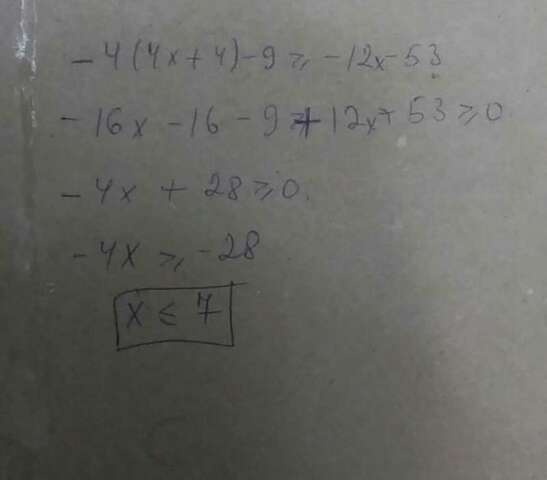 -4(4x+4)-9 ⩾ -12x-53
-16x -16 -9 + 12x + 53 ⩾ 0
-4x + 28 ⩾ 0.
-4x ⩾ -28
x ⩽ 7